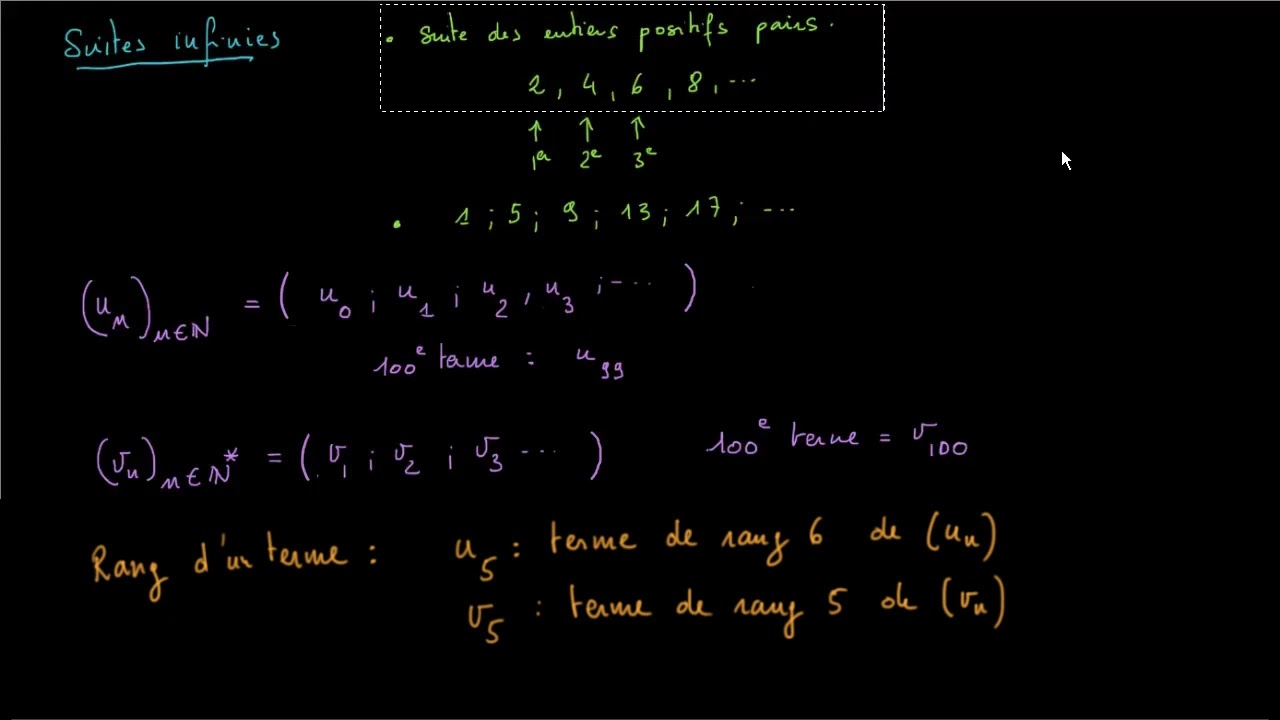 Suites infinies
• Suite des entiers positifs pairs.
2, 4, 6, 8, ...
↑ ↑ ↑
1er 2e 3e
• 1 ; 5 ; 9 ; 13 ; 17 ; ...
(u_n)_{n∈ℕ} = ( u_0 ; u_1 ; u_2 , u_3 ; ... )
100e terme : u_99
(v_n)_{n∈ℕ*} = ( v_1 ; v_2 ; v_3 ... ) 100e terme = v_100
Rang d'un terme : u_5 : terme de rang 6 de (u_n)
v_5 : terme de rang 5 de (v_n)